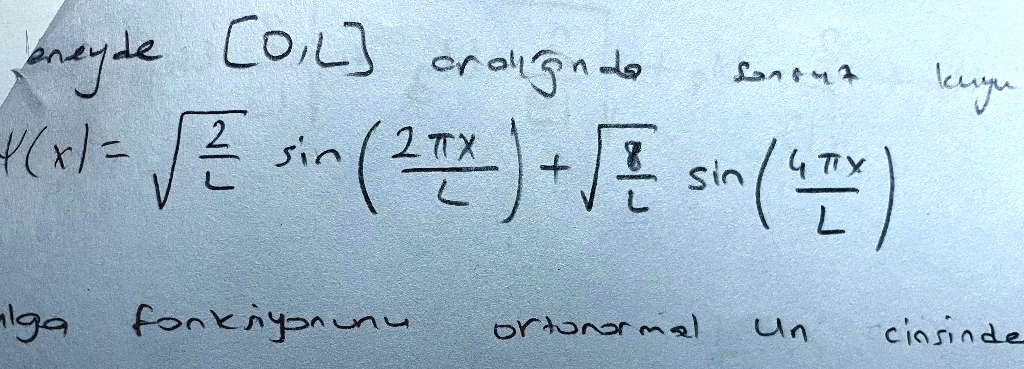 eneyde [0,L] aralığında sonsuz kuyu
ψ(x) = √(2/L) sin(2πx/L) + √(8/L) sin(4πx/L)
alga fonksiyonunu ortonormal Un cinsinde